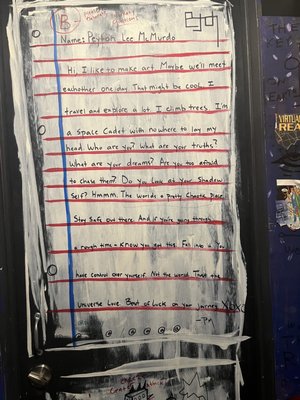 B-
Name: Peyton Lee McMurdo
Hi, I like to make art. Maybe we'll meet
eachother one day. That might be cool. I
travel and explore a lot. I climb trees. I'm
a Space Cadet with nowhere to lay my
head. Who are you? What are your truths?
What are your dreams? Are you too afraid
to chase them? Do you Look at your Shadow
Self? Hmmm. The world's a Pretty Chaotic Place
Stay Safe out there. And if you're going through
a rough time - Know you got this. Fall into a Tree
have control over yourself. Not the world. Trust the
Universe Love. Best of Luck on your journey XOXO
-PM
VIRTUAL